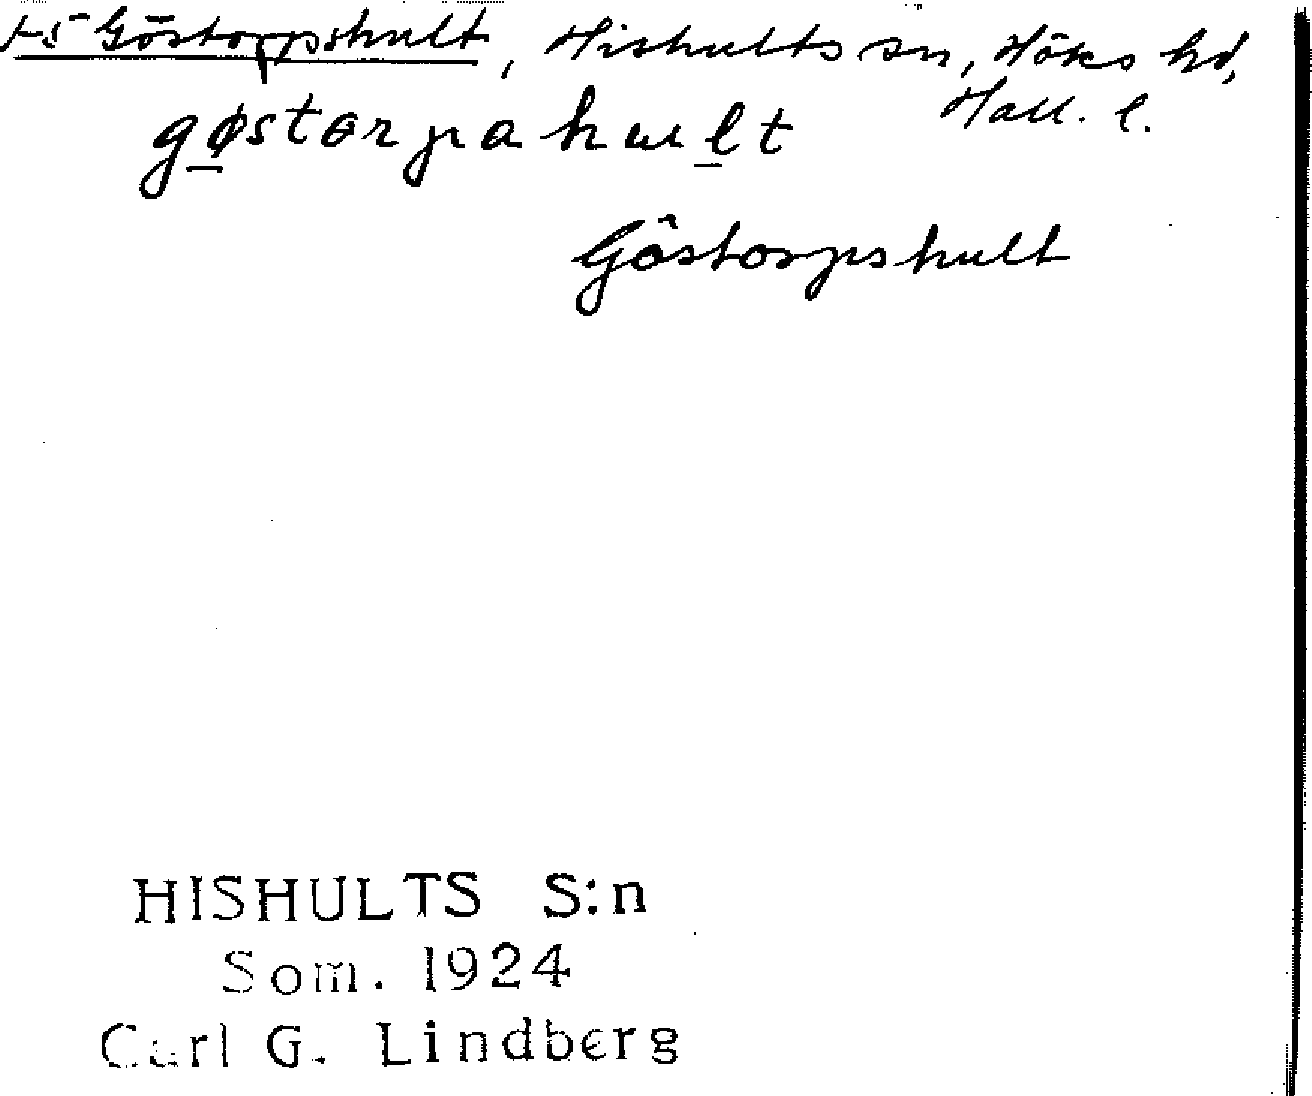 +5 Göstorpshult, Hishults sn, Höks hd,
Hall. l.
gøstɵrpahult
Göstorpshult
HISHULTS S:n
Som. 1924
Carl G. Lindberg